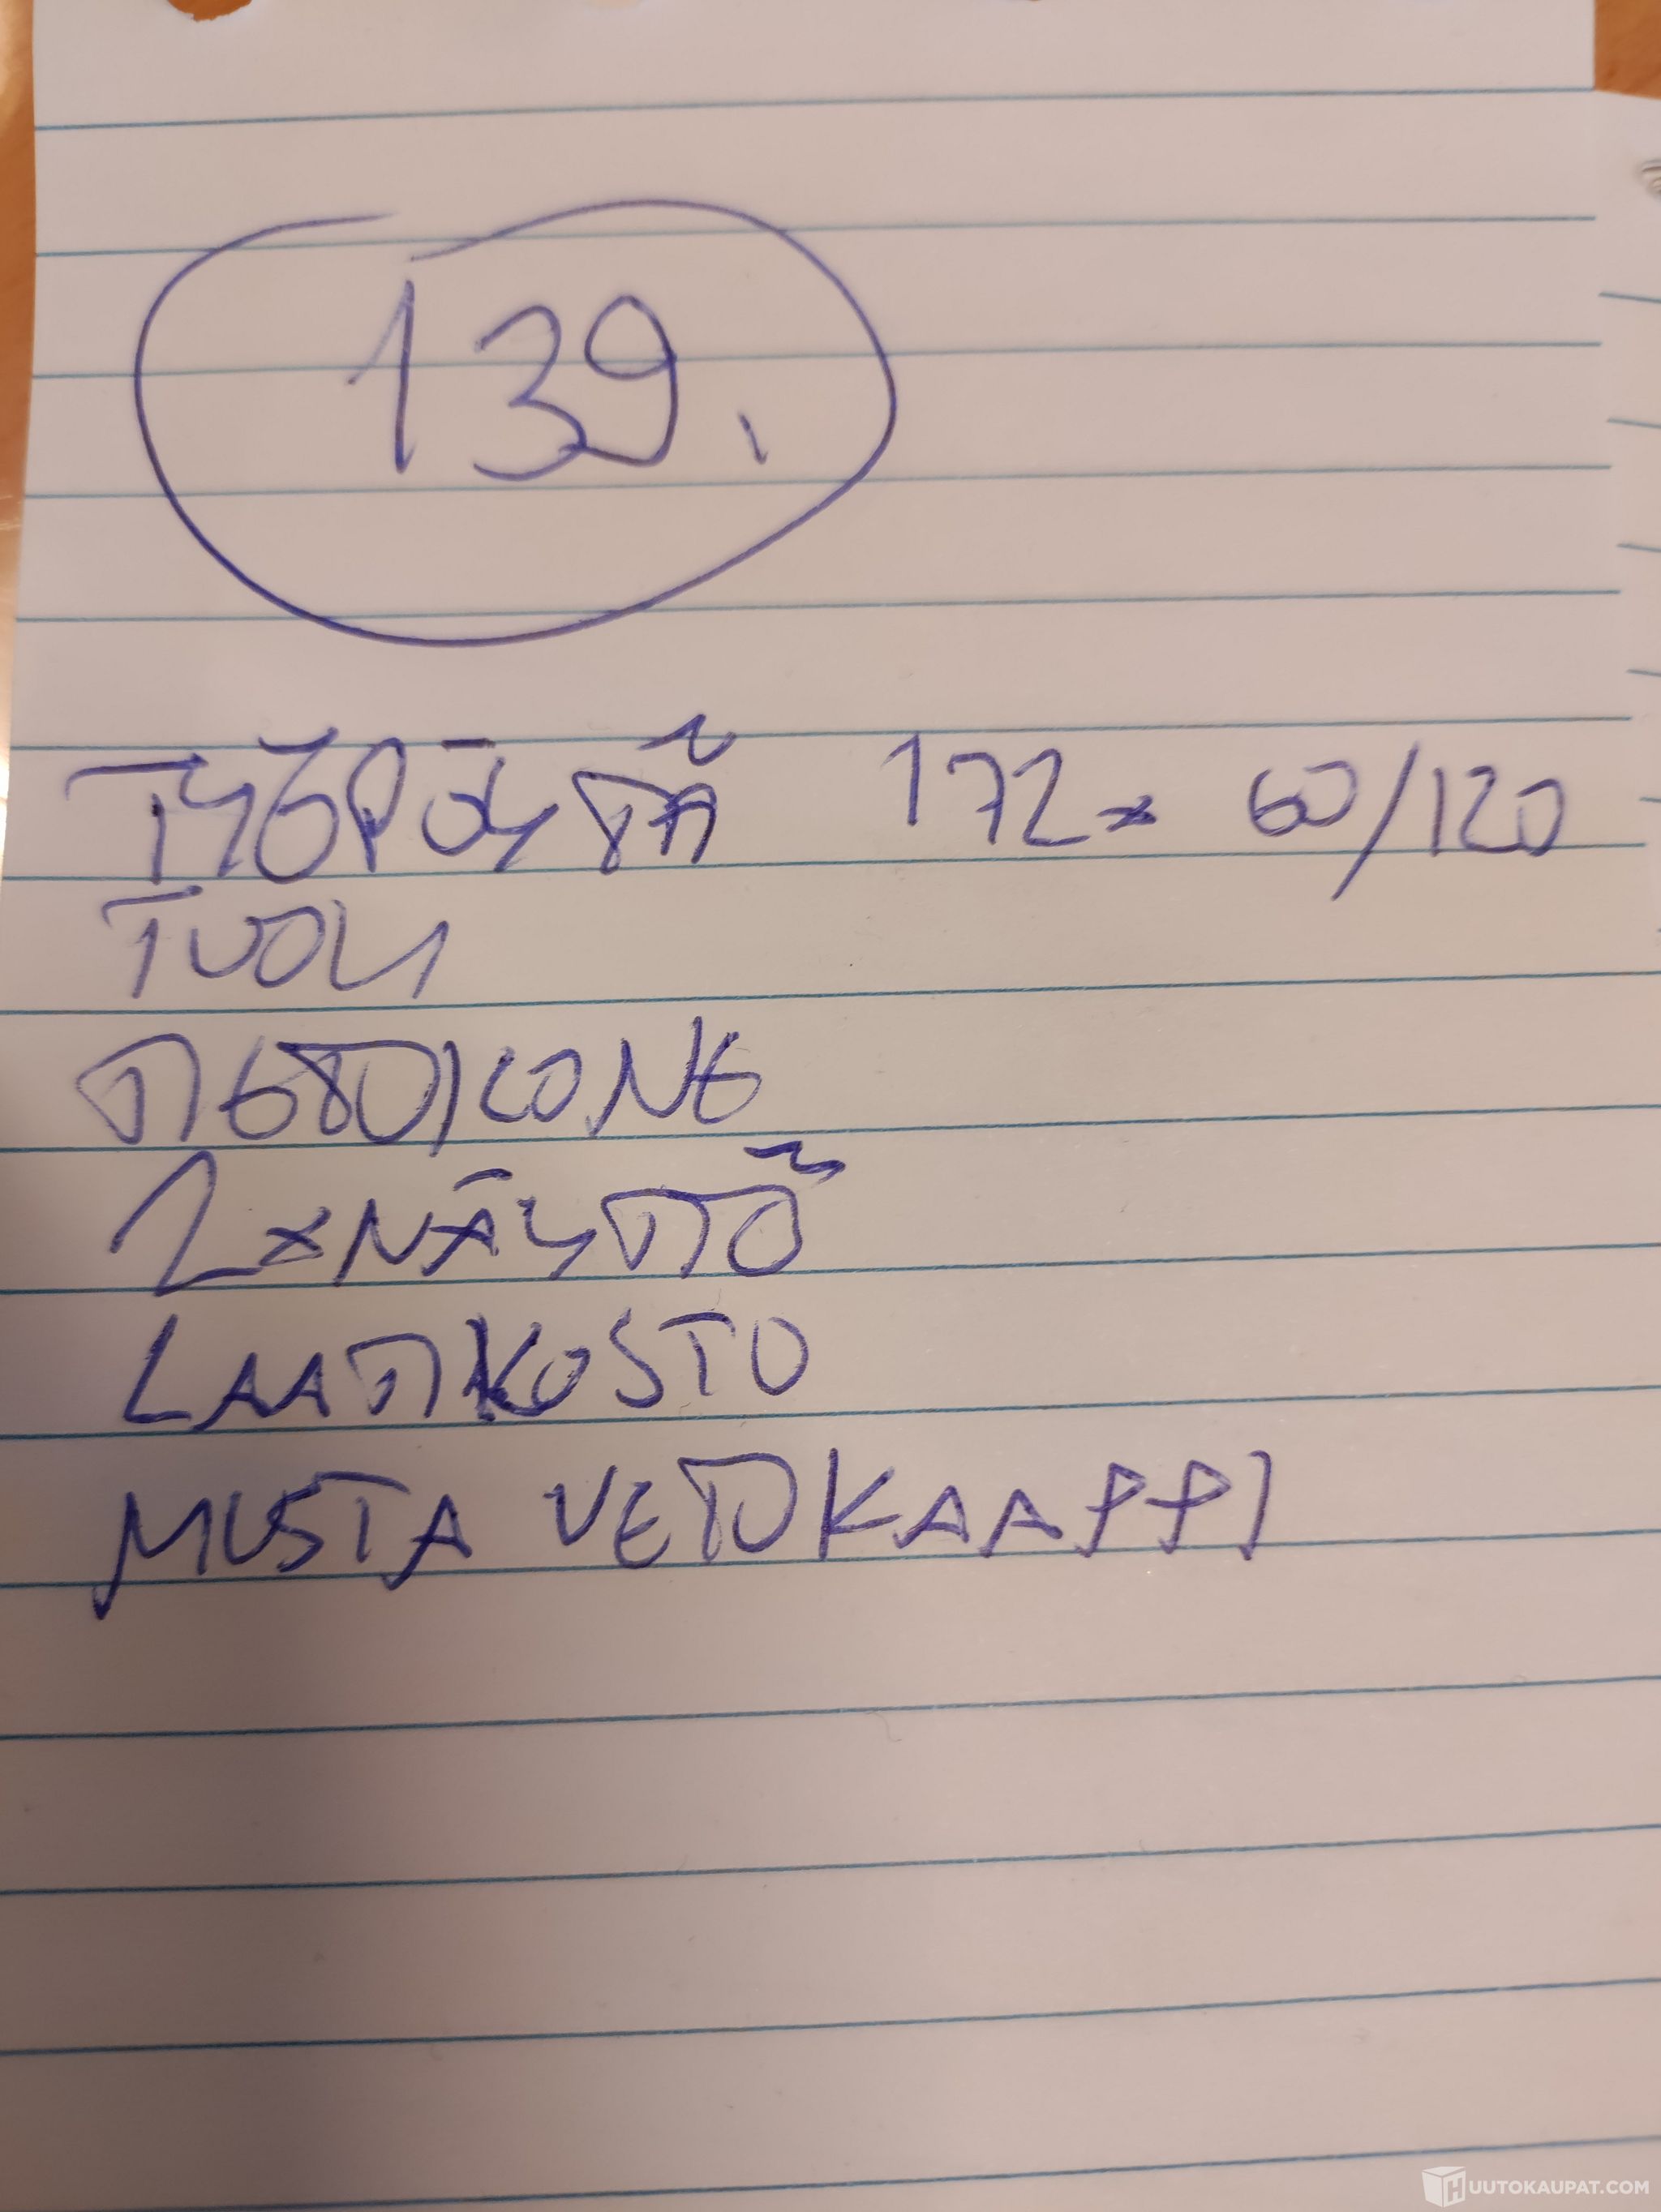 139.
TYÖPÖYTÄ 172x 60/120
TUOLI
TIETOKONE
2xNÄYTTÖ
LAATIKOSTO
MUSTA VETOKAAPPI
HUUTOKAUPAT.COM